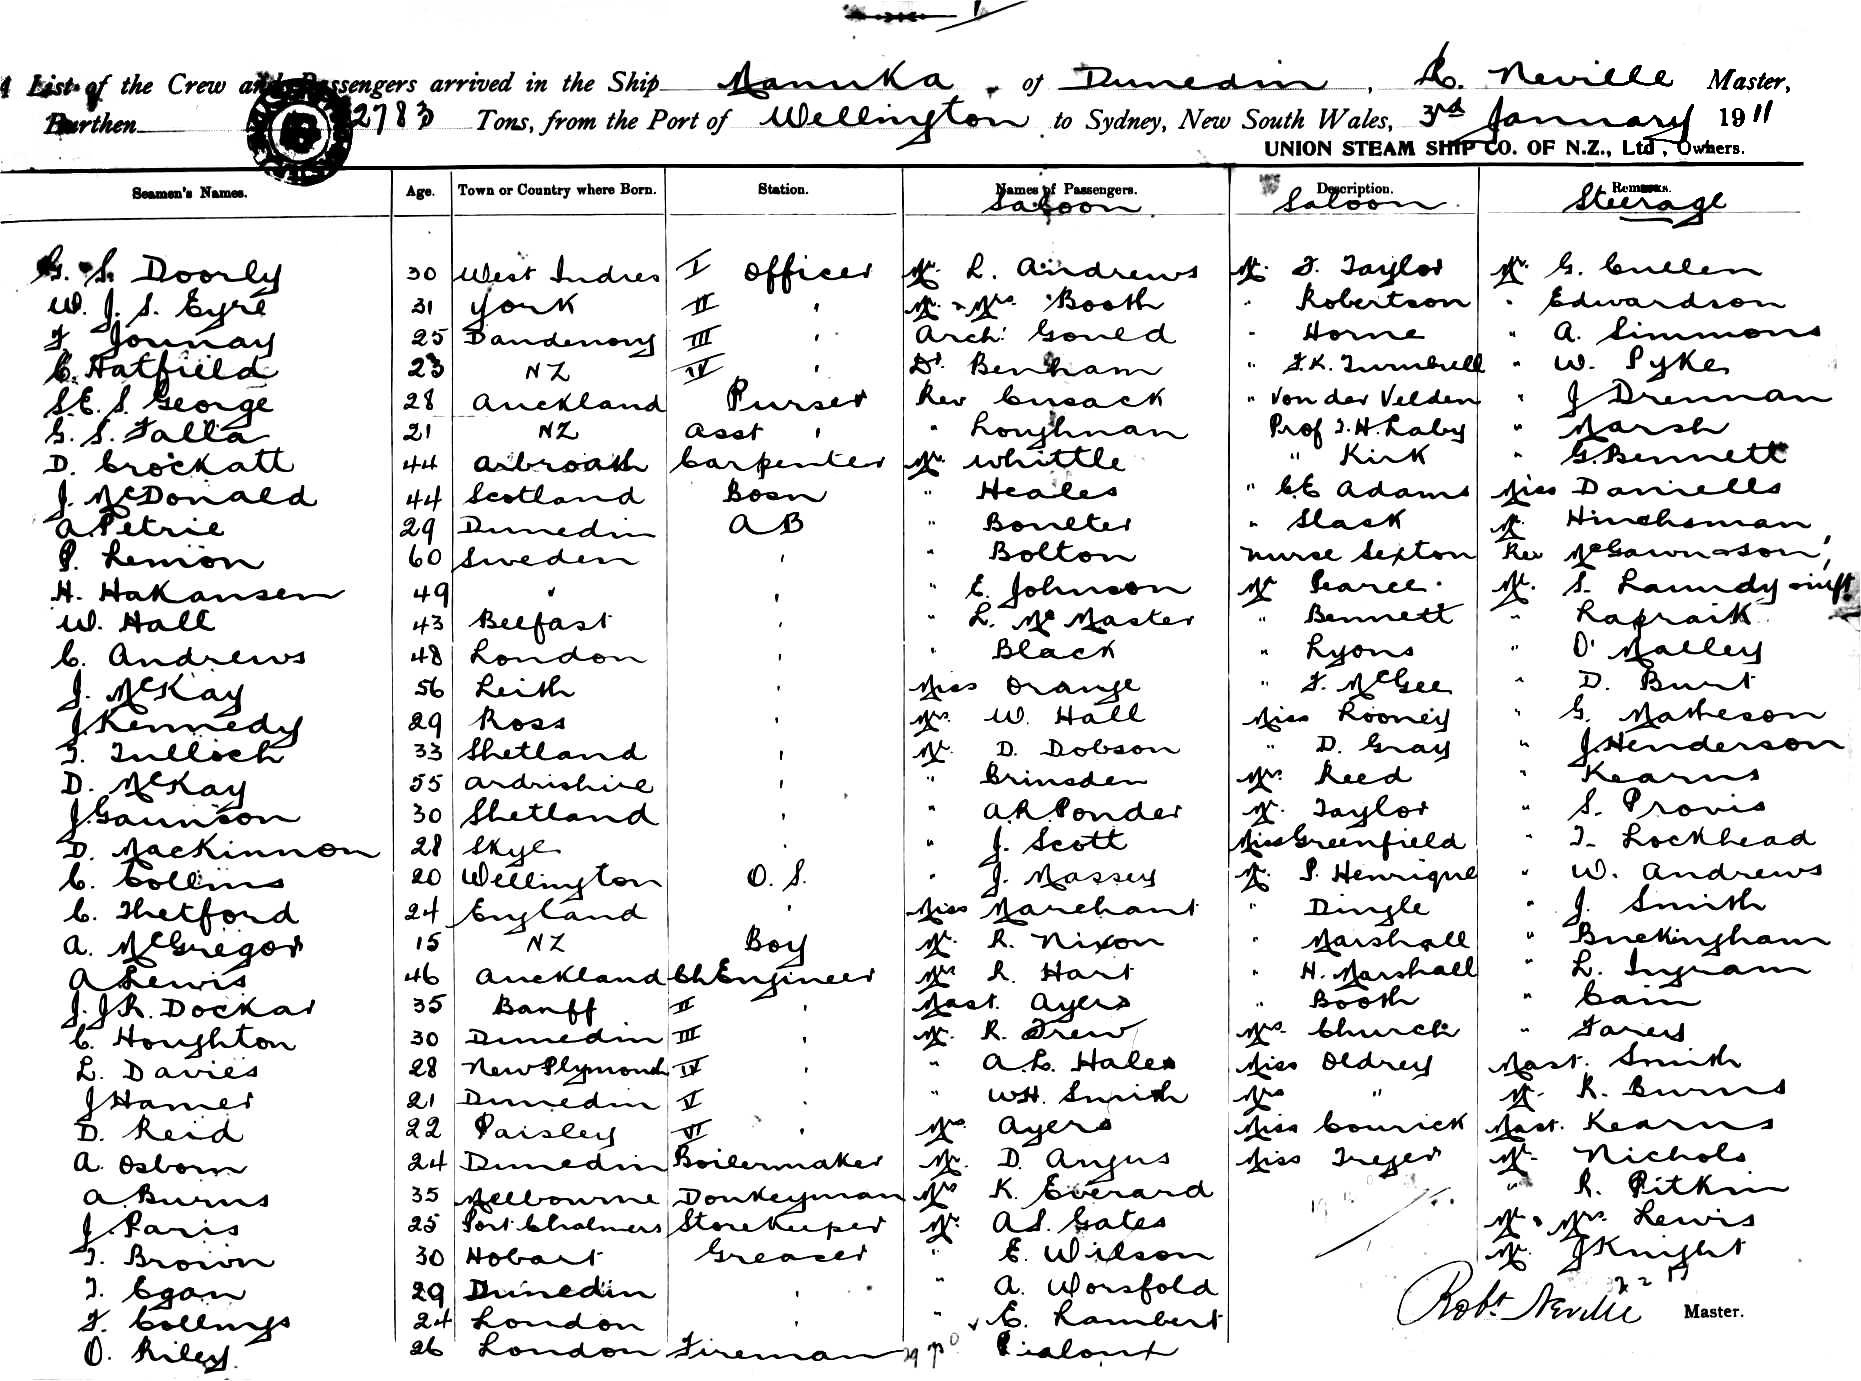 A List of the Crew and Passengers arrived in the Ship Manuka of Dunedin, R. Neville Master,
Burthen 2783 Tons, from the Port of Wellington to Sydney, New South Wales, 3rd January 1911
UNION STEAM SHIP CO. OF N.Z., Ltd, Owners.
Seamen's Names. Age. Town or Country where Born. Station. Names of Passengers. Description. Remarks.
Saloon Saloon Steerage
G. S. Doorly 30 West Indies I Officer Mr. L. Andrews Mr. F. Taylor Mr. G. Cullen
W. J. S. Eyre 31 York II " Mr. & Mrs. Booth " Robertson " Edwardson
F. Jounay 25 Dandenong III " Arch: Gould " Horne " A. Simmons
C. Hatfield 23 NZ IV " Dr. Benham " F.K. Turnbull " W. Pyke
S.E. S. George 28 Auckland Purser Rev Cusack " Von der Velden " J Drennan
G. S. Falla 21 NZ Asst " " Loughnan Prof T.H. Laby " Marsh
D. Crockatt 44 Arbroath Carpenter Mr. Whittle " Kirk " G. Bennett
J. McDonald 44 Scotland Bosn " Heales " C.E Adams Miss Daniells
A Petrie 29 Dunedin A B " Boulter " Slack Mr. Hinchsman
P. Lemon 60 Sweden " " Bolton Nurse Sexton Rev
H. Hakansen 49 " " " E. Johnson Mr Pearce Mr. S. Laundy
W. Hall 43 Belfast " " L. McMaster " Bennett " Lapraik
C. Andrews 48 London " " Black " Lyons " O'Malley
J. McKay 56 Leith " Miss Orange " F. McGee " D. Burt
J Kennedy 29 Ross " Mr. W. Hall Miss Rooney " G. Matheson
T. Tulloch 33 Shetland " Mr. D. Dobson " D. Gray " J. Henderson
D. McKay 55 Ardrishire " " Brinsden Mrs. Reed " Kearns
J. Gaunson 30 Shetland " " A.R. Ponder Mr. Taylor " S. Provis
D. MacKinnon 28 Skye " " J. Scott Miss Greenfield " T. Lockhead
C. Collins 20 Wellington O. S. " J. Massey Mr. P. Henrique " W. Andrews
C. Thetford 24 England " Miss Marchant " Dingle " J. Smith
A. McGregor 15 NZ Boy Mr. R. Nixon " Marshall " Buckingham
A Lewis 46 Auckland Ch Engineer Mrs R. Hart " H. Marshall " L. Ingram
J. J.R. Dockar 35 Banff II " Mast. Ayers " Booth " Cain
C. Houghton 30 Dunedin III " Mr. R. Trew Mrs. Church " Farey
L. Davies 28 New Plymouth IV " " A.L. Hales Miss Oldrey Mast. Smith
J Hamer 21 Dunedin V " " W.H. Smith Mrs " Mr. R. Burns
D. Reid 22 Paisley VI " Mrs. Ayers Miss Cowrick Mast. Kearns
A. Osborn 24 Dunedin Boilermaker Mr. D. Angus Miss Treyer Mr. Nichols
A Burns 35 Melbourne Donkeyman Mrs K. Everard " R. Pitkin
J. Paris 25 Port Chalmers Storekeeper Mr. A.S. Gates Mr. & Mrs. Lewis
T. Brown 30 Hobart Greaser " E. Wilson Mr. J Knight
T. Egan 29 Dunedin " " A. Worsfold
F. Collings 24 London " " E. Lambert Robt Neville Master.
O. Riley 26 London Fireman